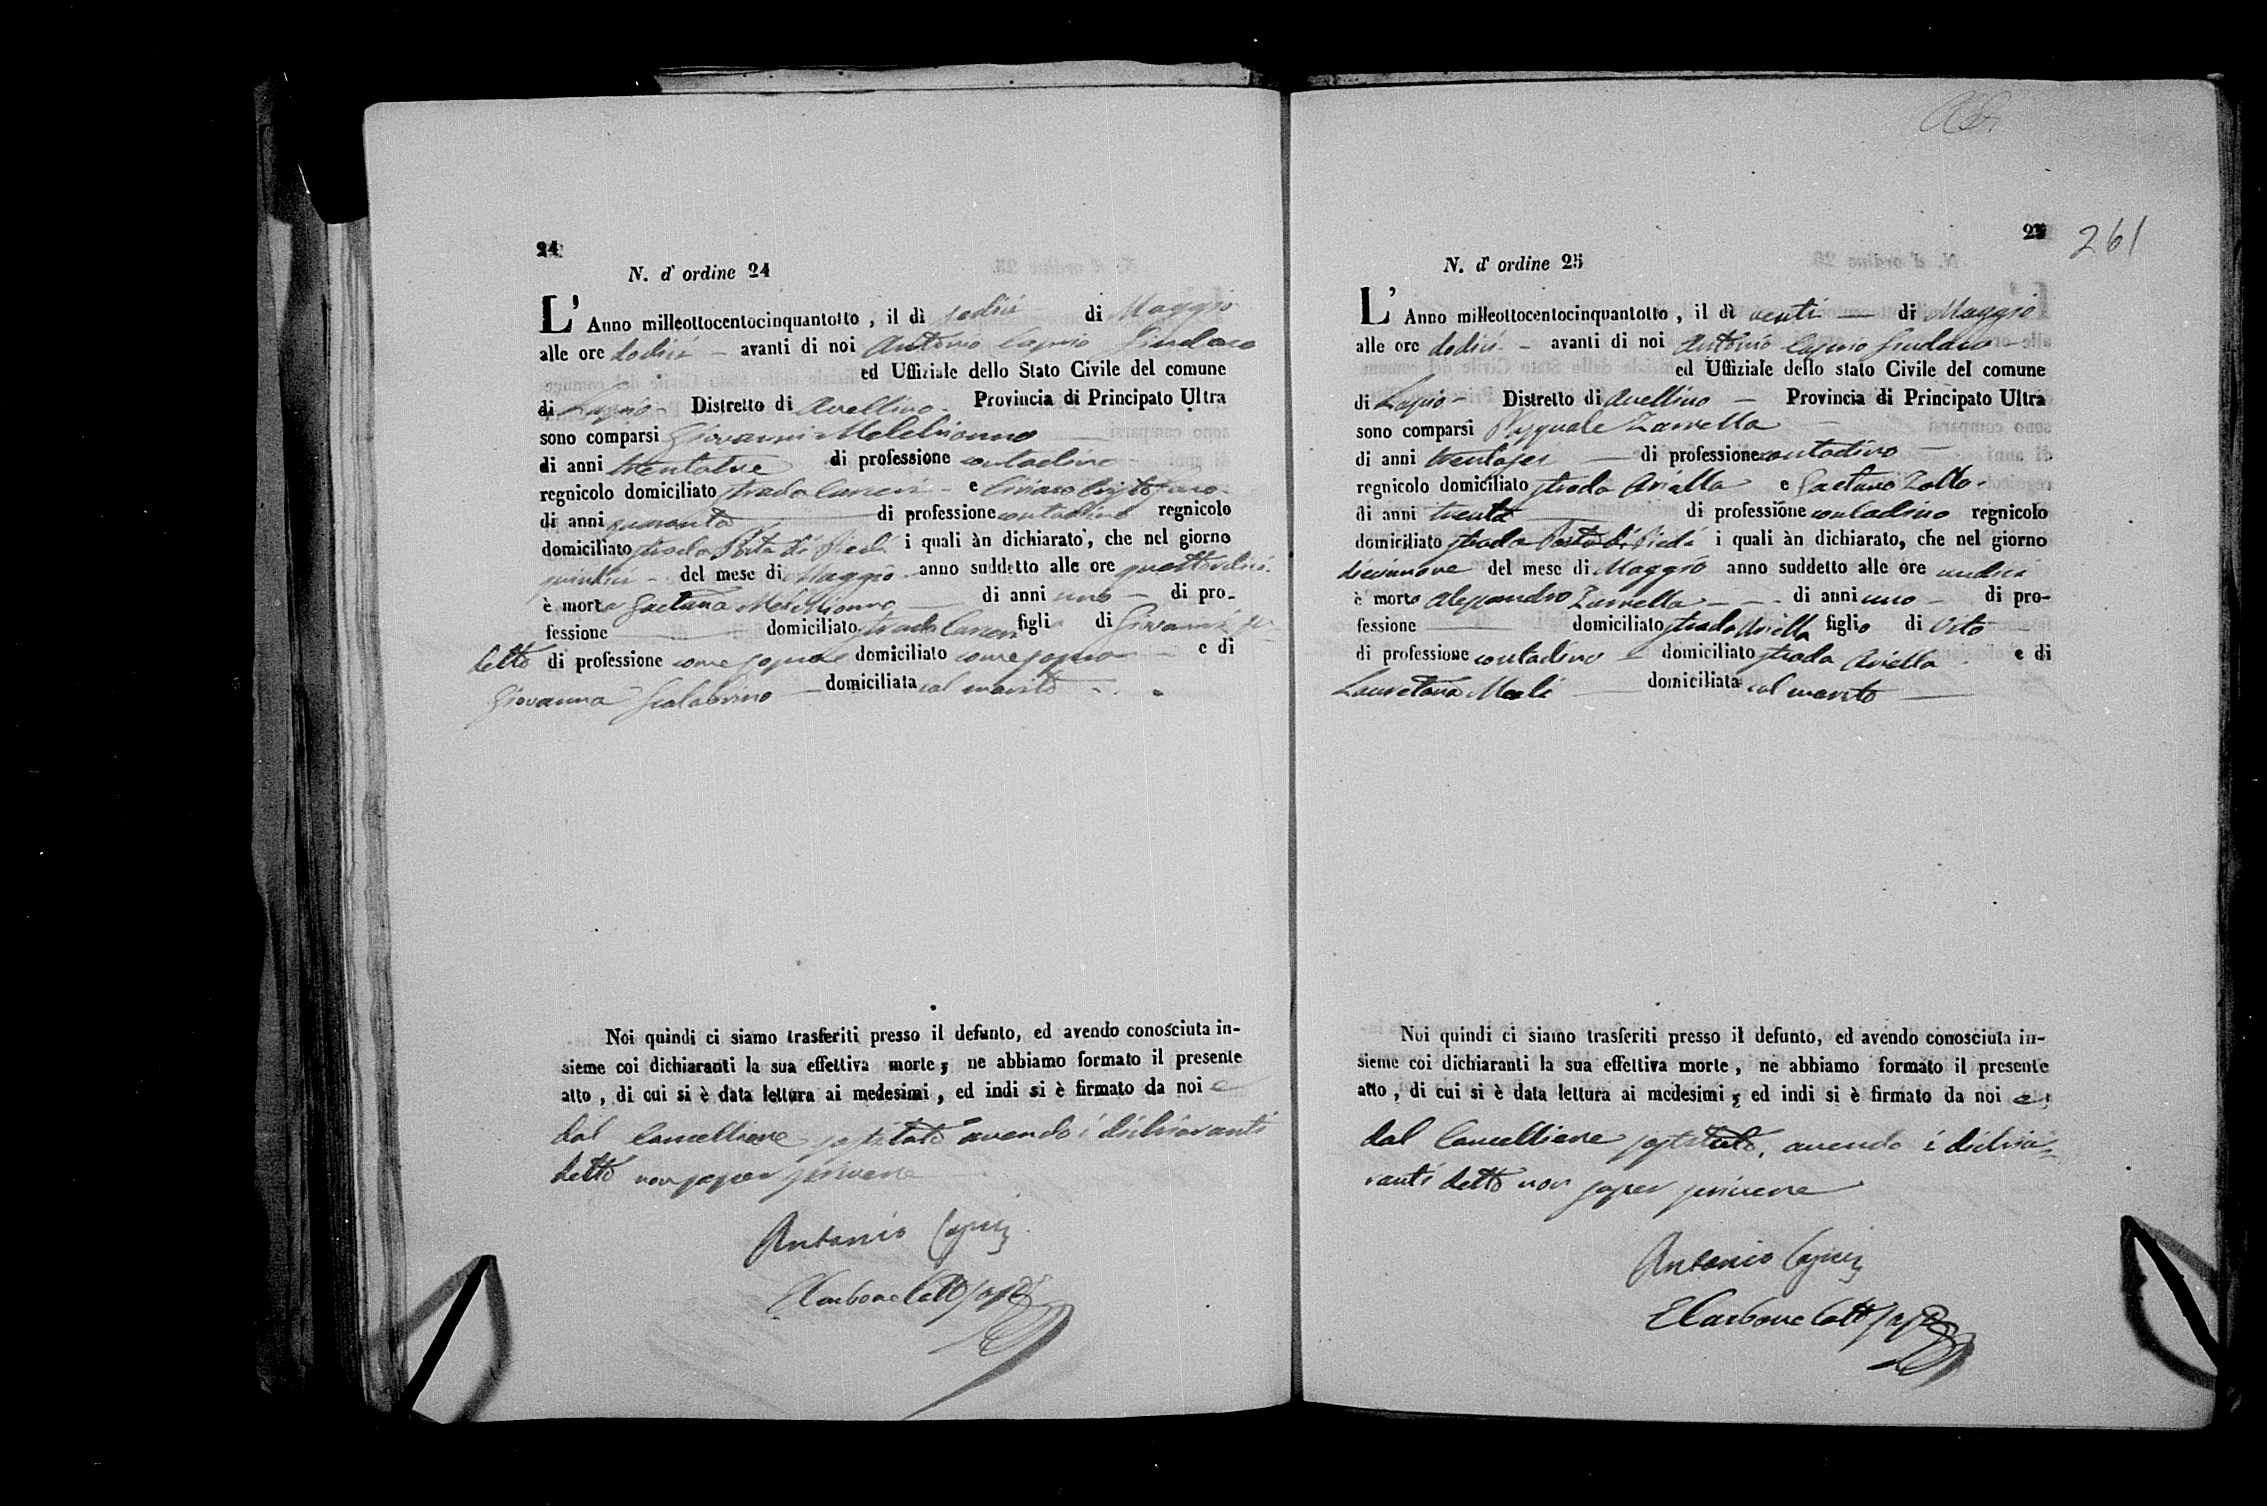 24
N. d' ordine 24
L' Anno milleottocentocinquantotto, il dì sedici di Maggio
alle ore dodici — avanti di noi Antonio Caprio Sindaco
ed Uffiziale dello Stato Civile del comune
di Lapio - Distretto di Avellino - Provincia di Principato Ultra
sono comparsi Giovanni Melchionno
di anni trentatre di professione contadino
regnicolo domiciliato strada Carceri - e Ciriaco
di anni quaranta di professione contadino regnicolo
domiciliato strada Porta di Piedi i quali àn dichiarato, che nel giorno
quindici - del mese di Maggio anno suddetto alle ore quattordici
è morta Gaetana Melchionno di anni uno — di pro-
fessione domiciliato strada Carceri figli di Giovanni
detto di professione come sopra domiciliato come sopra — e di
Giovanna Scalabrino — domiciliata col marito
Noi quindi ci siamo trasferiti presso il defunto, ed avendo conosciuta in-
sieme coi dichiaranti la sua effettiva morte, ne abbiamo formato il presente
atto, di cui si è data lettura ai medesimi, ed indi si è firmato da noi e
dal Cancelliere sostituto avendo i dichiaranti
detto non saper scrivere
Antonio Caprio
E Carbone Canc sost
261
25
N. d' ordine 25
L' Anno milleottocentocinquantotto, il dì venti — di Maggio
alle ore dodici - avanti di noi Antonio Caprio Sindaco
ed Uffiziale dello stato Civile del comune
di Lapio - Distretto di Avellino — Provincia di Principato Ultra
sono comparsi Pasquale Zarrella
di anni trentasei — di professione contadino
regnicolo domiciliato strada Ariella e Gaetano Zollo
di anni trenta di professione contadino regnicolo
domiciliato strada Porta di Piedi i quali àn dichiarato, che nel giorno
diecinnove del mese di Maggio anno suddetto alle ore undici
è morto Alessandro Zarrella — di anni uno — di pro-
fessione domiciliato strada Ariella figlio di Vito
di professione contadino — domiciliato strada Ariella e di
Lauretana Meoli domiciliata col marito
Noi quindi ci siamo trasferiti presso il defunto, ed avendo conosciuta in-
sieme coi dichiaranti la sua effettiva morte, ne abbiamo formato il presente
atto, di cui si è data lettura ai medesimi, ed indi si è firmato da noi e
dal Cancelliere sostituto, avendo i dichia-
ranti detto non saper scrivere
Antonio Caprio
E Carbone Canc sost